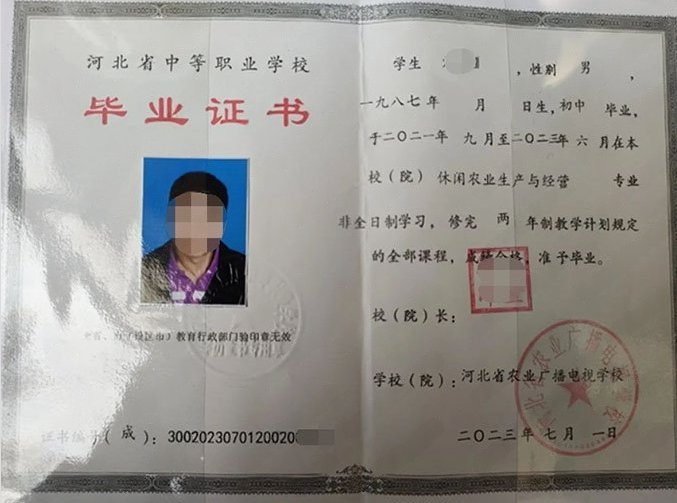 河北省中等职业学校
毕业证书
省、市(设区市)教育行政部门验印章无效
证书编号(成):30020230701200200
学生 ,性别 男 ,
一九八七年 月 日生,初中 毕业,
于二〇二一年 九 月至二〇二三年 六 月在本
校(院) 休闲农业生产与经营 专业
非全日制学习,修完 两 年制教学计划规定
的全部课程,成绩合格,准予毕业。
校(院)长:
学校(院):河北省农业广播电视学校
二〇二三年 七月 一日
河北省农业广播电视学校